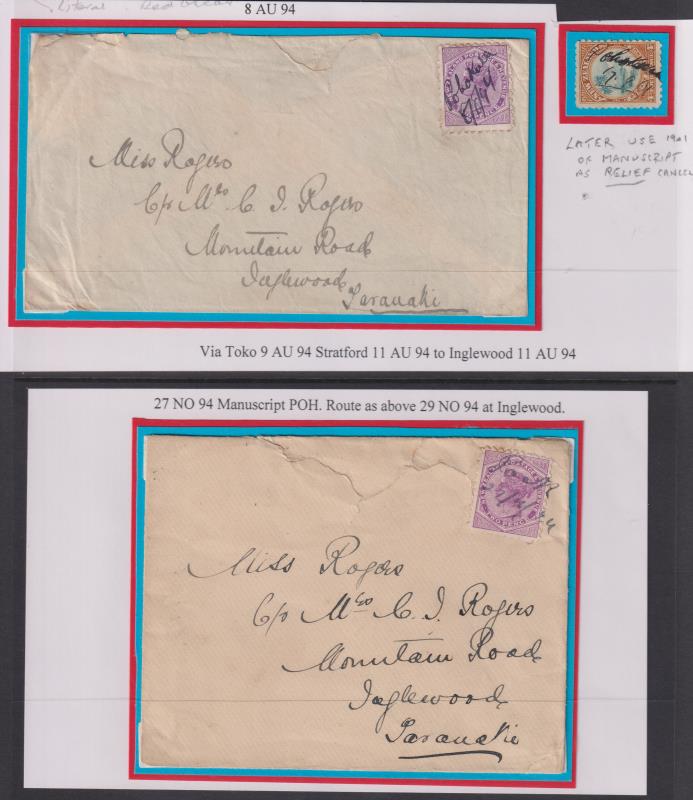 Literal Red
8 AU 94
Pohokura
8/8/94
Miss Rogers
C/o Mrs C. J. Rogers
Mountain Road
Inglewood
Taranaki
LATER USE 1901
OF MANUSCRIPT
AS RELIEF CANCEL
Via Toko 9 AU 94 Stratford 11 AU 94 to Inglewood 11 AU 94
27 NO 94 Manuscript POH. Route as above 29 NO 94 at Inglewood.
TWO PENCE
Miss Rogers
C/o Mrs C. J. Rogers
Mountain Road
Inglewood
Taranaki